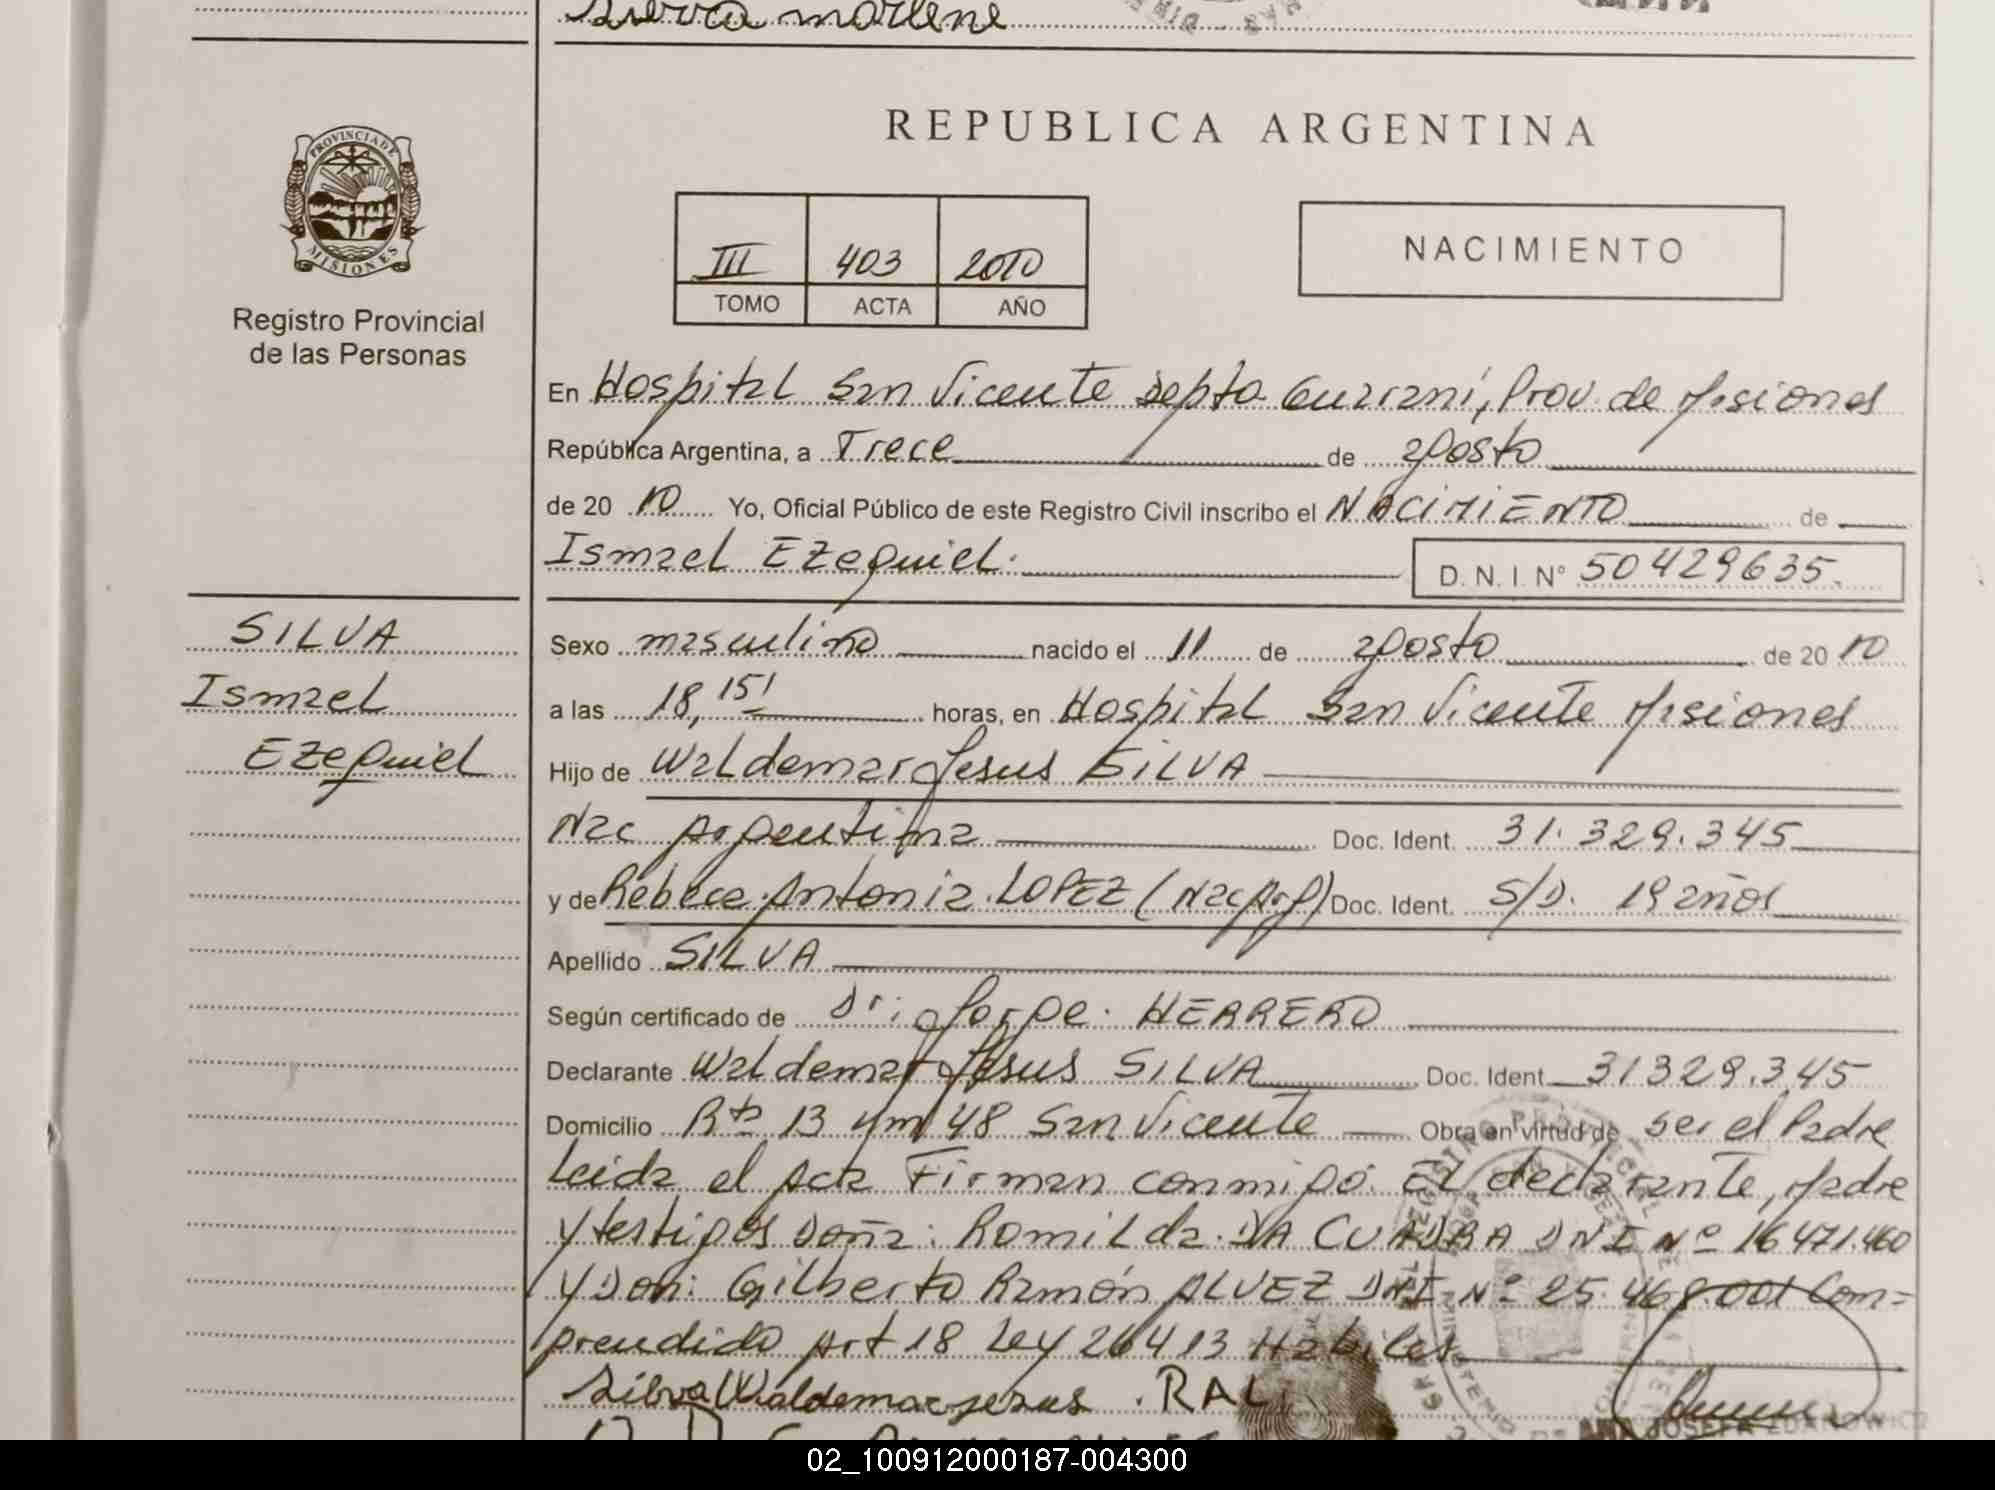 Silva marlene
REPUBLICA ARGENTINA
PROVINCIA DE
MISIONES
Registro Provincial
de las Personas
III 403 2010
TOMO ACTA AÑO
NACIMIENTO
En Hospital San Vicente Depto Guarani, Prov. de Misiones
República Argentina, a Trece de agosto
de 20 10 Yo, Oficial Público de este Registro Civil inscribo el NACIMIENTO de
Ismael Ezequiel. D.N.I. Nº 50429635.
SILVA
Ismael
Ezequiel
Sexo masculino nacido el 11 de agosto de 20 10
a las 18,15' horas, en Hospital San Vicente Misiones
Hijo de Waldemar Jesus SILVA
Nac Argentina Doc. Ident. 31.329.345
y de Rebeca Antonia LOPEZ (Nac Arg) Doc. Ident. S/D. 19 años
Apellido SILVA
Según certificado de Dr: Jorge HERRERO
Declarante Waldemar Jesus SILVA Doc. Ident. 31329.345
Domicilio Rta 13 Km 48 San Vicente Obra en virtud de ser el Padre
Leida el Acta Firman conmigo: El declarante, Madre
y testigos Doña: Romilda DA CUADRA DNI Nº 16471.460
y Don: Gilberto Ramón ALVEZ DNI Nº 25.468.001 Com=
prendido Art 18 Ley 26413 Habiles
Silva Waldemar jesus . RAL
JOSEFA
02_100912000187-004300